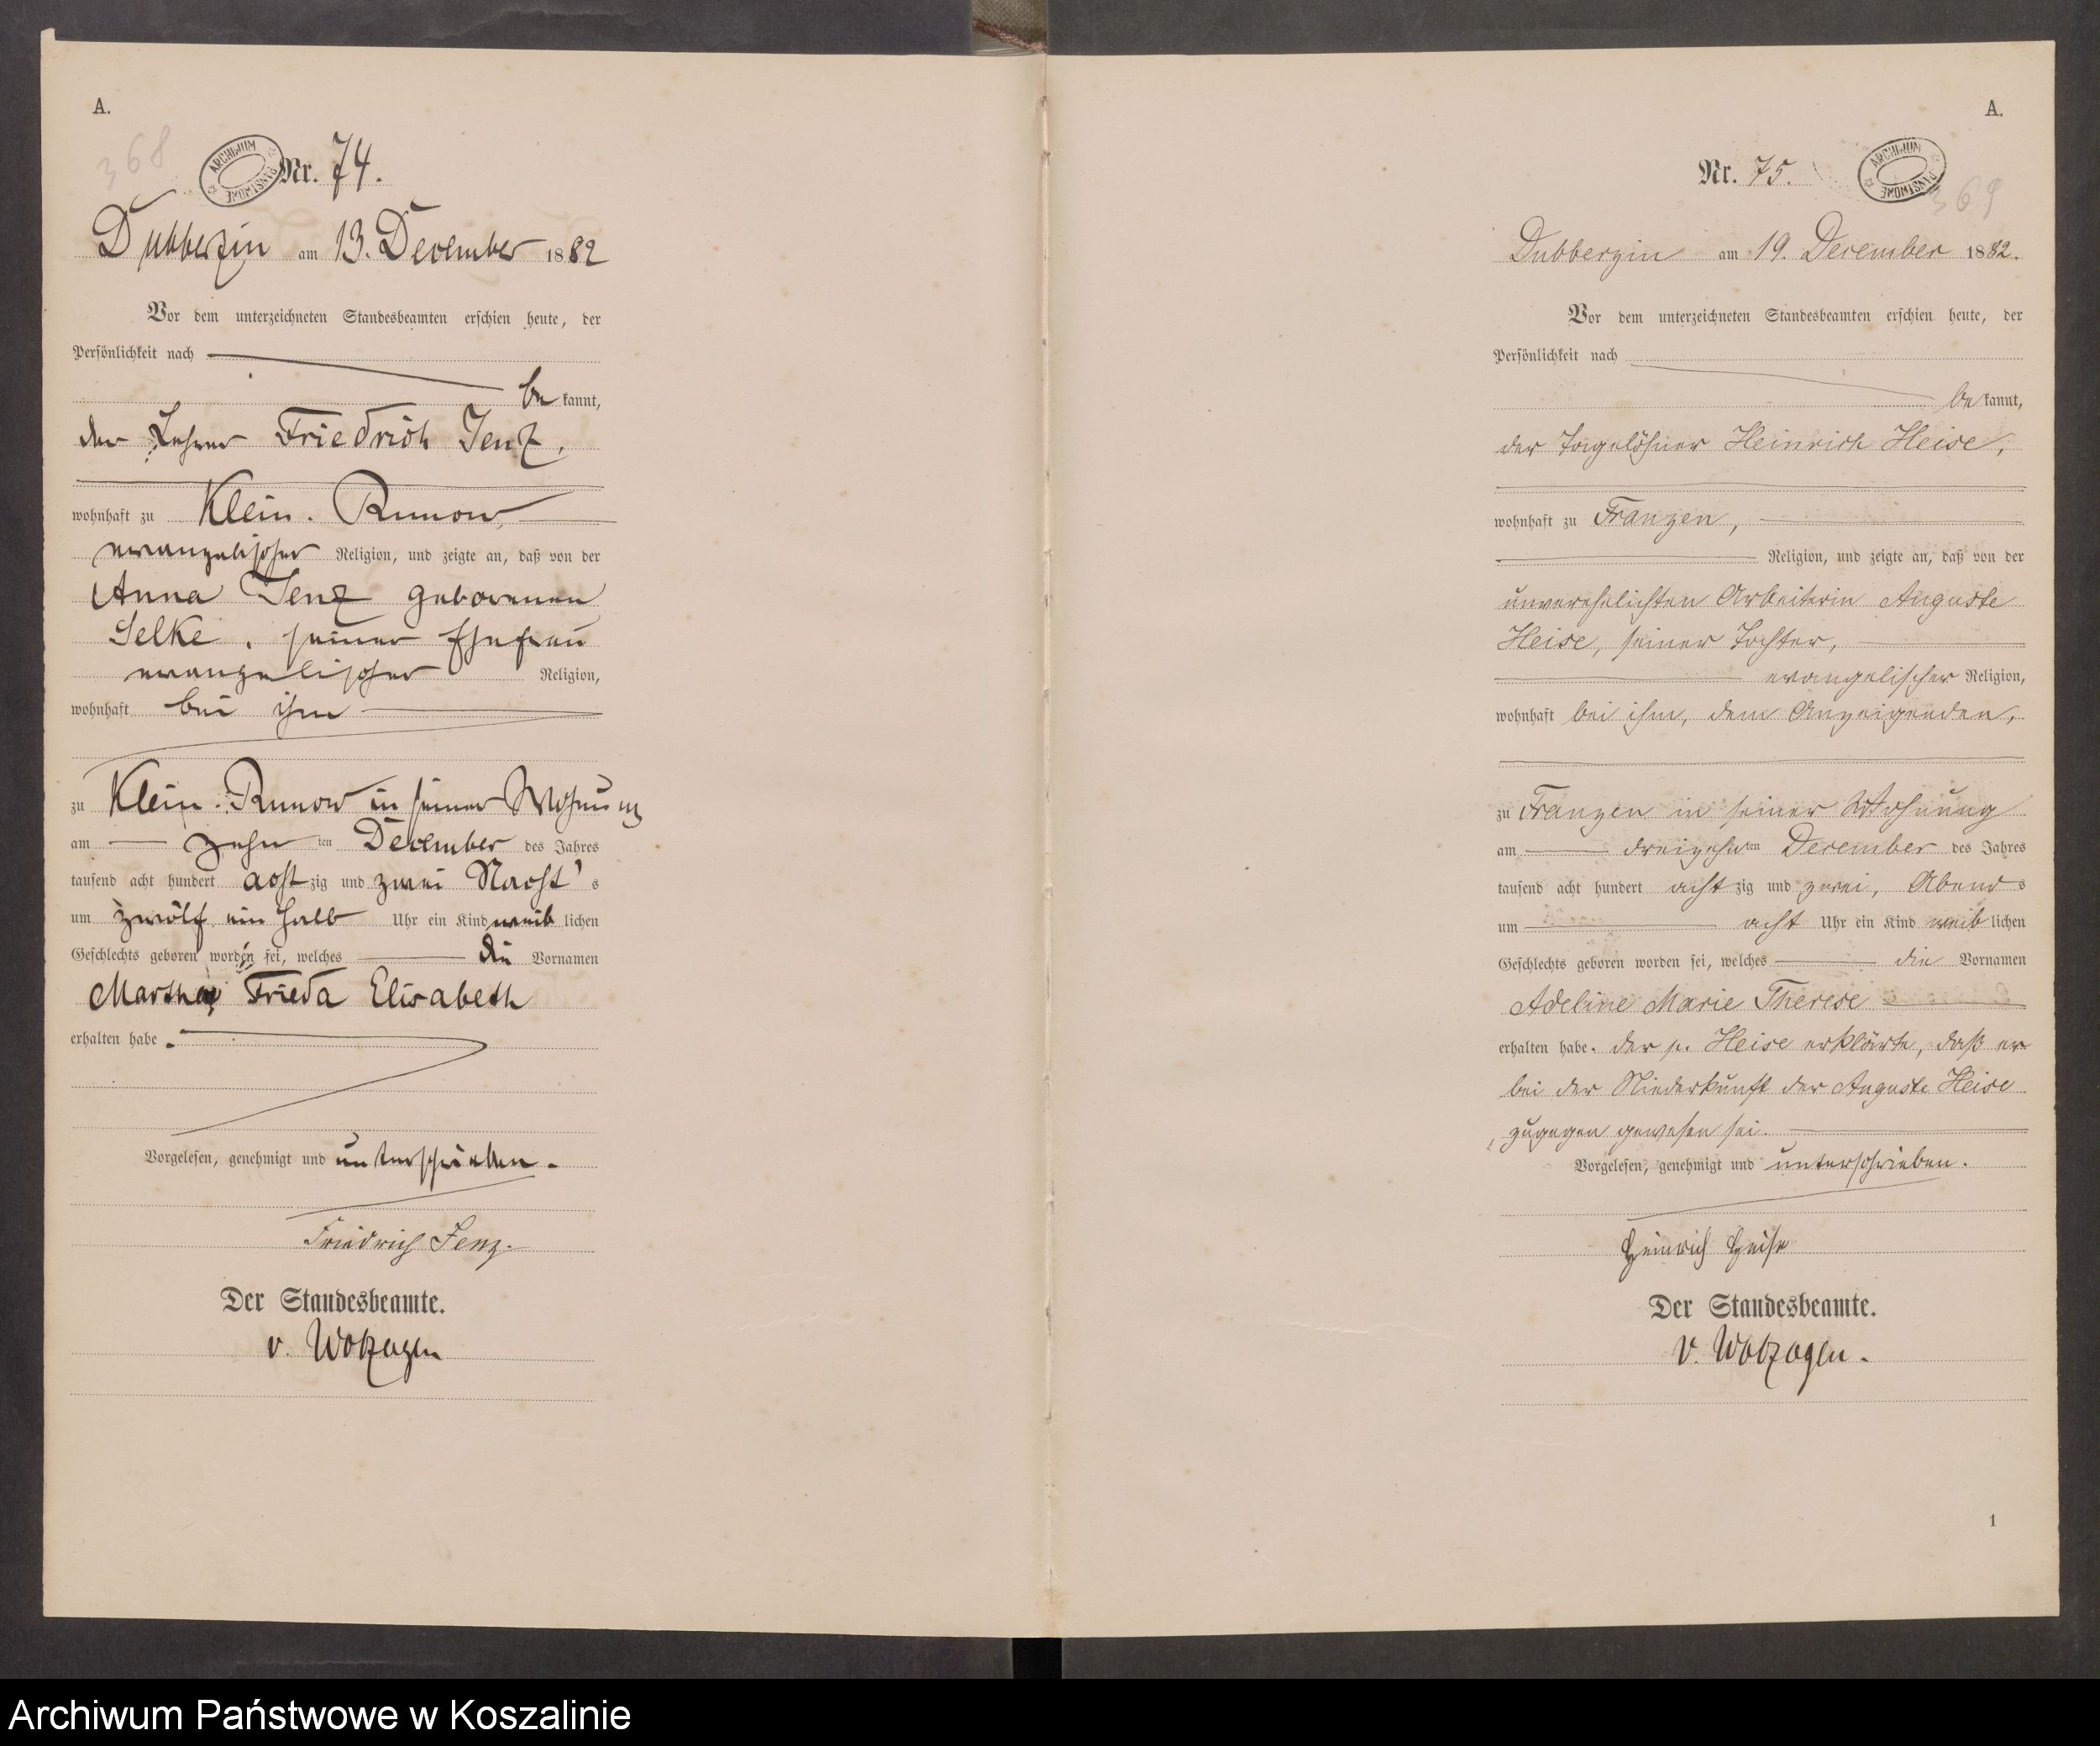 A.
368
ARCHIWUM PAŃSTWOWE
Nr. 74.
Dubberzin am 13. December 1882
Vor dem unterzeichneten Standesbeamten erschien heute, der
Persönlichkeit nach
bekannt,
der Lehrer Friedrich Jenz,
wohnhaft zu Klein. Runow,
evangelischer Religion, und zeigte an, daß von der
Anna Jenz geborenen
Selke, seiner Ehefrau
evangelischer Religion,
wohnhaft bei ihm
zu Klein. Runow in seiner Wohnung
am zehnten December des Jahres
tausend acht hundert achtzig und zwei Nacht's
um zwölf ein halb Uhr ein Kind weiblichen
Geschlechts geboren worden sei, welches die Vornamen
Martha Frieda Elisabeth
erhalten habe.
Vorgelesen, genehmigt und unterschrieben.
Friedrich Jenz.
Der Standesbeamte.
v. Wolzogen
A.
Nr. 75.
ARCHIWUM PAŃSTWOWE
369
Dubberzin am 19. December 1882.
Vor dem unterzeichneten Standesbeamten erschien heute, der
Persönlichkeit nach
bekannt,
der Tagelöhner Heinrich Heise,
wohnhaft zu Franzen,
Religion, und zeigte an, daß von der
unverehelichten Arbeiterin Auguste
Heise, seiner Tochter,
evangelischer Religion,
wohnhaft bei ihm, dem Anzeigenden,
zu Franzen in seiner Wohnung
am dreizehnten December des Jahres
tausend acht hundert achtzig und zwei, Abends
um acht Uhr ein Kind weiblichen
Geschlechts geboren worden sei, welches die Vornamen
Adeline Marie Therese
erhalten habe. Der p. Heise erklärte, daß er
bei der Niederkunft der Auguste Heise
zugegen gewesen sei.
Vorgelesen, genehmigt und unterschrieben.
Heinrich Heise
Der Standesbeamte.
v. Wolzogen.
1
Archiwum Państwowe w Koszalinie